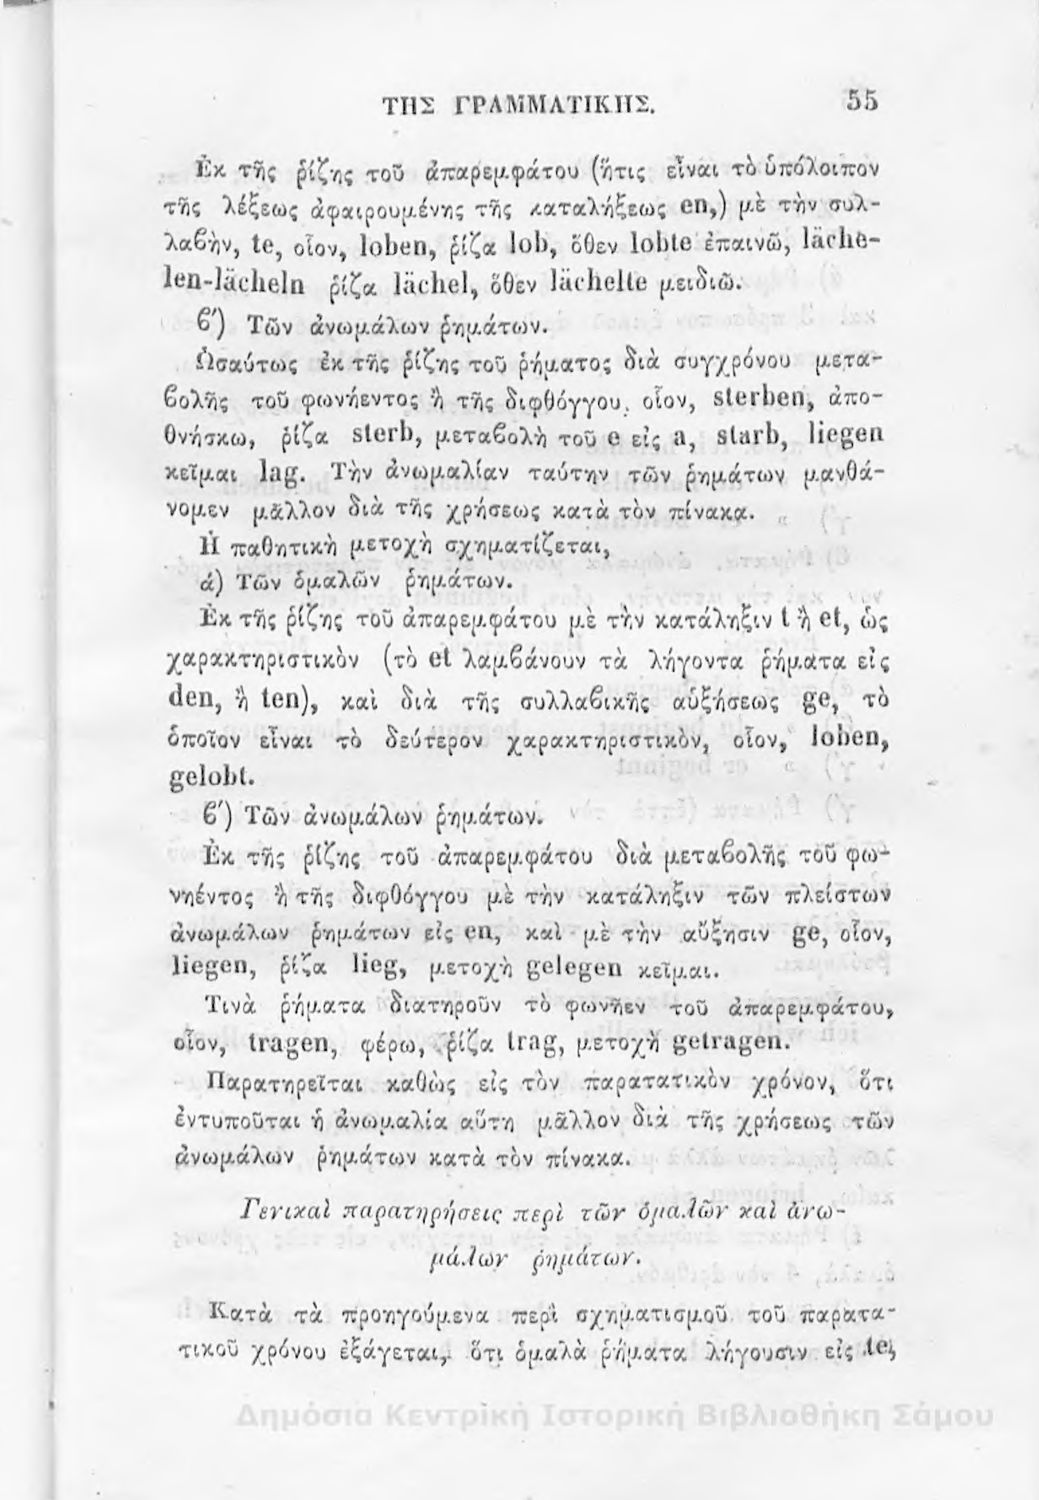 ΤΗΣ ΓΡΑΜΜΑΤΙΚΗΣ. 55
Ἐκ τῆς ῥίζης τοῦ ἀπαρεμφάτου (ἥτις εἶναι τὸ ὑπόλοιπον
τῆς λέξεως ἀφαιρουμένης τῆς καταλήξεως en,) μὲ τὴν συλ-
λαβὴν, te, οἷον, loben, ῥίζα lob, ὅθεν lobte ἐπαινῶ, läche-
len-lächeln ῥίζα lächel, ὅθεν lächelte μειδιῶ.
β΄) Τῶν ἀνωμάλων ῥημάτων.
Ὡσαύτως ἐκ τῆς ῥίζης τοῦ ῥήματος διὰ συγχρόνου μετα-
βολῆς τοῦ φωνήεντος ἢ τῆς διφθόγγου, οἷον, sterben, ἀπο-
θνήσκω, ῥίζα sterb, μεταβολὴ τοῦ e εἰς a, starb, liegen
κεῖμαι lag. Τὴν ἀνωμαλίαν ταύτην τῶν ῥημάτων μανθά-
νομεν μᾶλλον διὰ τῆς χρήσεως κατὰ τὸν πίνακα.
Ἡ παθητικὴ μετοχὴ σχηματίζεται,
ά) Τῶν ὁμαλῶν ῥημάτων.
Ἐκ τῆς ῥίζης τοῦ ἀπαρεμφάτου μὲ τὴν κατάληξιν t ἢ et, ὡς
χαρακτηριστικὸν (τὸ et λαμβάνουν τὰ λήγοντα ῥήματα εἰς
den, ἢ ten), καὶ διὰ τῆς συλλαβικῆς αὐξήσεως ge, τὸ
ὁποῖον εἶναι τὸ δεύτερον χαρακτηριστικὸν, οἷον, loben,
gelobt.
β΄) Τῶν ἀνωμάλων ῥημάτων.
Ἐκ τῆς ῥίζης τοῦ ἀπαρεμφάτου διὰ μεταβολῆς τοῦ φω-
νηέντος ἢ τῆς διφθόγγου μὲ τὴν κατάληξιν τῶν πλείστων
ἀνωμάλων ῥημάτων εἰς en, καὶ μὲ τὴν αὔξησιν ge, οἷον,
liegen, ῥίζα lieg, μετοχὴ gelegen κεῖμαι.
Τινὰ ῥήματα διατηροῦν τὸ φωνῆεν τοῦ ἀπαρεμφάτου,
οἷον, tragen, φέρω, ῥίζα trag, μετοχὴ getragen.
Παρατηρεῖται καθὼς εἰς τὸν παρατατικὸν χρόνον, ὅτι
ἐντυποῦται ἡ ἀνωμαλία αὕτη μᾶλλον διὰ τῆς χρήσεως τῶν
ἀνωμάλων ῥημάτων κατὰ τὸν πίνακα.
Γενικαὶ παρατηρήσεις περὶ τῶν ὁμαλῶν καὶ ἀνω-
μάλων ῥημάτων.
Κατὰ τὰ προηγούμενα περὶ σχηματισμοῦ τοῦ παρατα-
τικοῦ χρόνου ἐξάγεται, ὅτι ὁμαλὰ ῥήματα λήγουσιν εἰς te,
Δημόσια Κεντρική Ιστορική Βιβλιοθήκη Σάμου